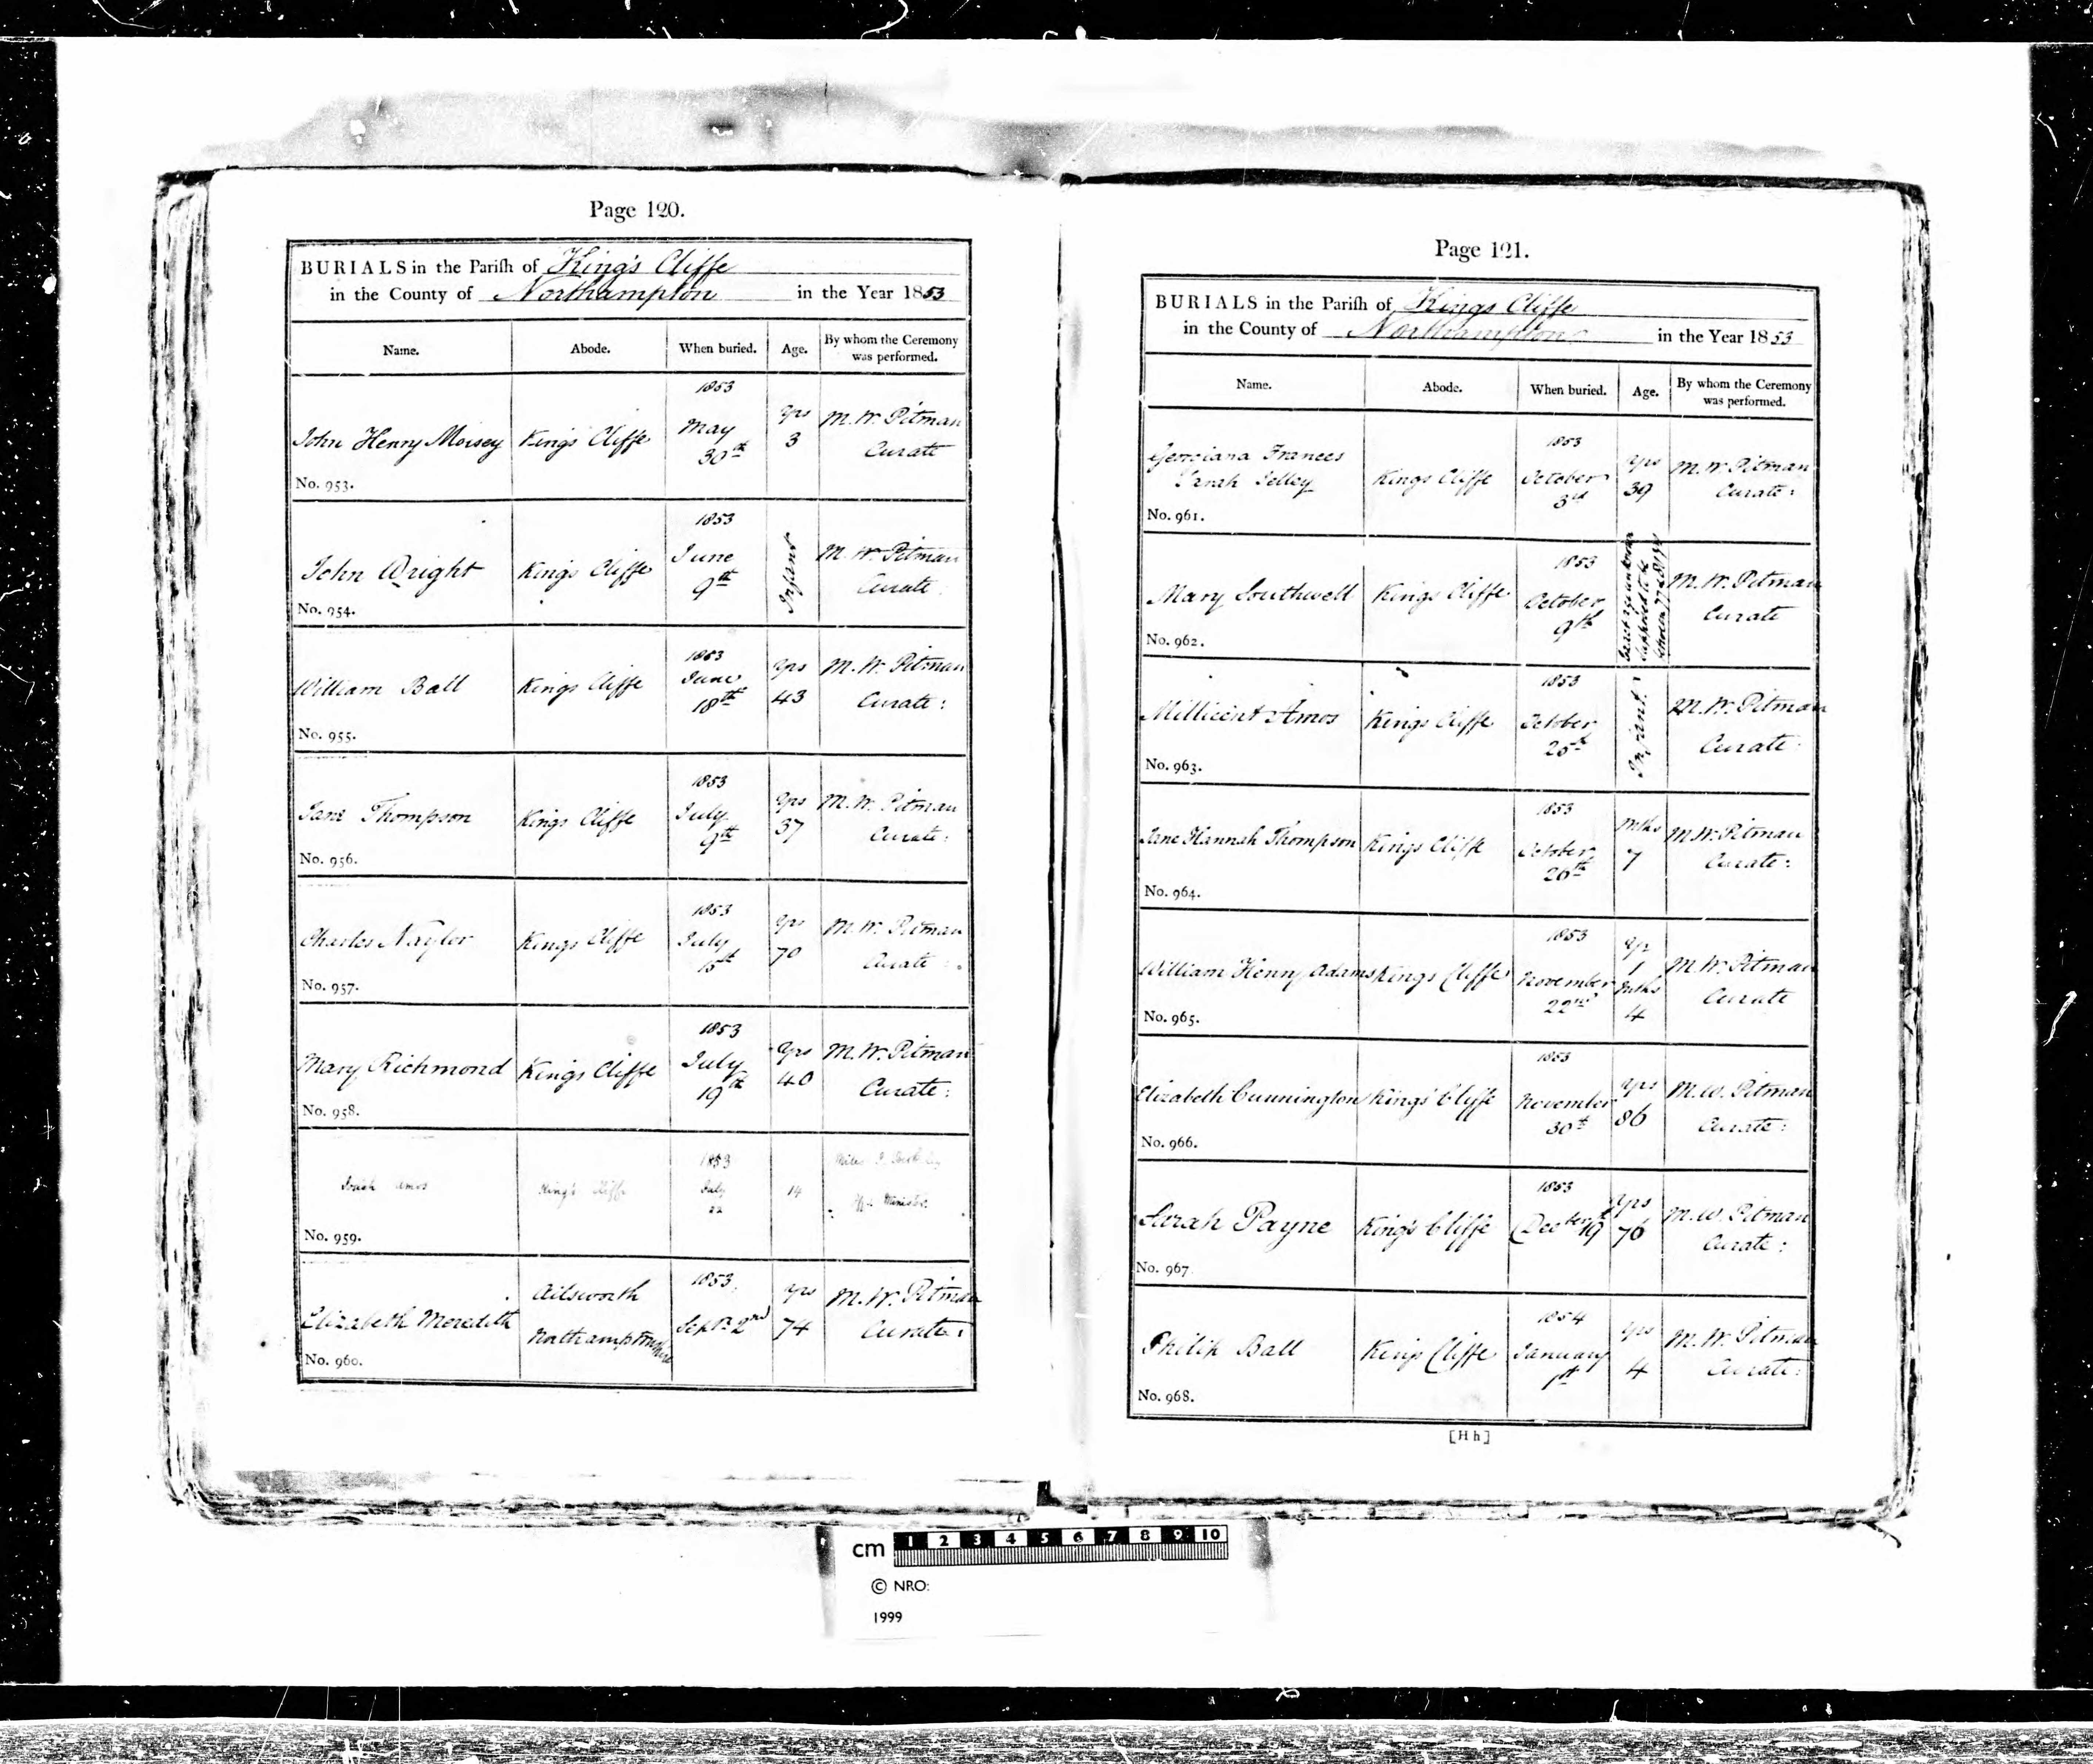 Page 120.
BURIALS in the Parish of King's Cliffe
in the County of Northampton in the Year 1853
Name. Abode. When buried. Age. By whom the Ceremony was performed.
1853
John Henry Moisey King's Cliffe May 30th yrs 3 M. W. Pitman Curate
No. 953.
1853
John Wright King's Cliffe June 9th Infant M. W. Pitman Curate
No. 954.
1853
William Ball Kings Cliffe June 18th yrs 43 M. W. Pitman Curate:
No. 955.
1853
Jane Thompson Kings Cliffe July 9th yrs 37 M. W. Pitman Curate:
No. 956.
1853
Charles Naylor Kings Cliffe July 15th yrs 70 M. W. Pitman Curate:
No. 957.
1853
Mary Richmond Kings Cliffe July 19th yrs 40 M. W. Pitman Curate:
No. 958.
1853
Amos King's Cliffe July 22 14 Miles Minister
No. 959.
1853
Elizabeth Meredith Ailsworth Northamptonshire Septr 2nd yrs 74 M. W. Pitman Curate:
No. 960.
Page 121.
BURIALS in the Parish of Kings Cliffe
in the County of Northampton in the Year 1853
Name. Abode. When buried. Age. By whom the Ceremony was performed.
1853
Georgiana Frances Sarah Kings Cliffe October 3rd yrs 39 M. W. Pitman Curate:
No. 961.
1853
Mary Southwell Kings Cliffe October 9th Exact age unknown supposed to be between 77 & M. W. Pitman Curate
No. 962.
1853
Millicent Amos Kings Cliffe October 25th Infant. M. W. Pitman Curate:
No. 963.
1853
Jane Hannah Thompson Kings Cliffe October 26th Mths 7 M. W. Pitman Curate:
No. 964.
1853
William Henry Adams Kings Cliffe November 22nd Yr 1 Mths 4 M. W. Pitman Curate
No. 965.
1853
Elizabeth Cunnington King's Cliffe November 30th yrs 86 M. W. Pitman Curate:
No. 966.
1853
Sarah Payne King's Cliffe Decber 19 yrs 76 M. W. Pitman Curate:
No. 967
1854
Philip Ball Kings Cliffe January 1st yrs 4 M. W. Pitman Curate:
No. 968.
[H h]
cm 1 2 3 4 5 6 7 8 9 10
© NRO:
1999